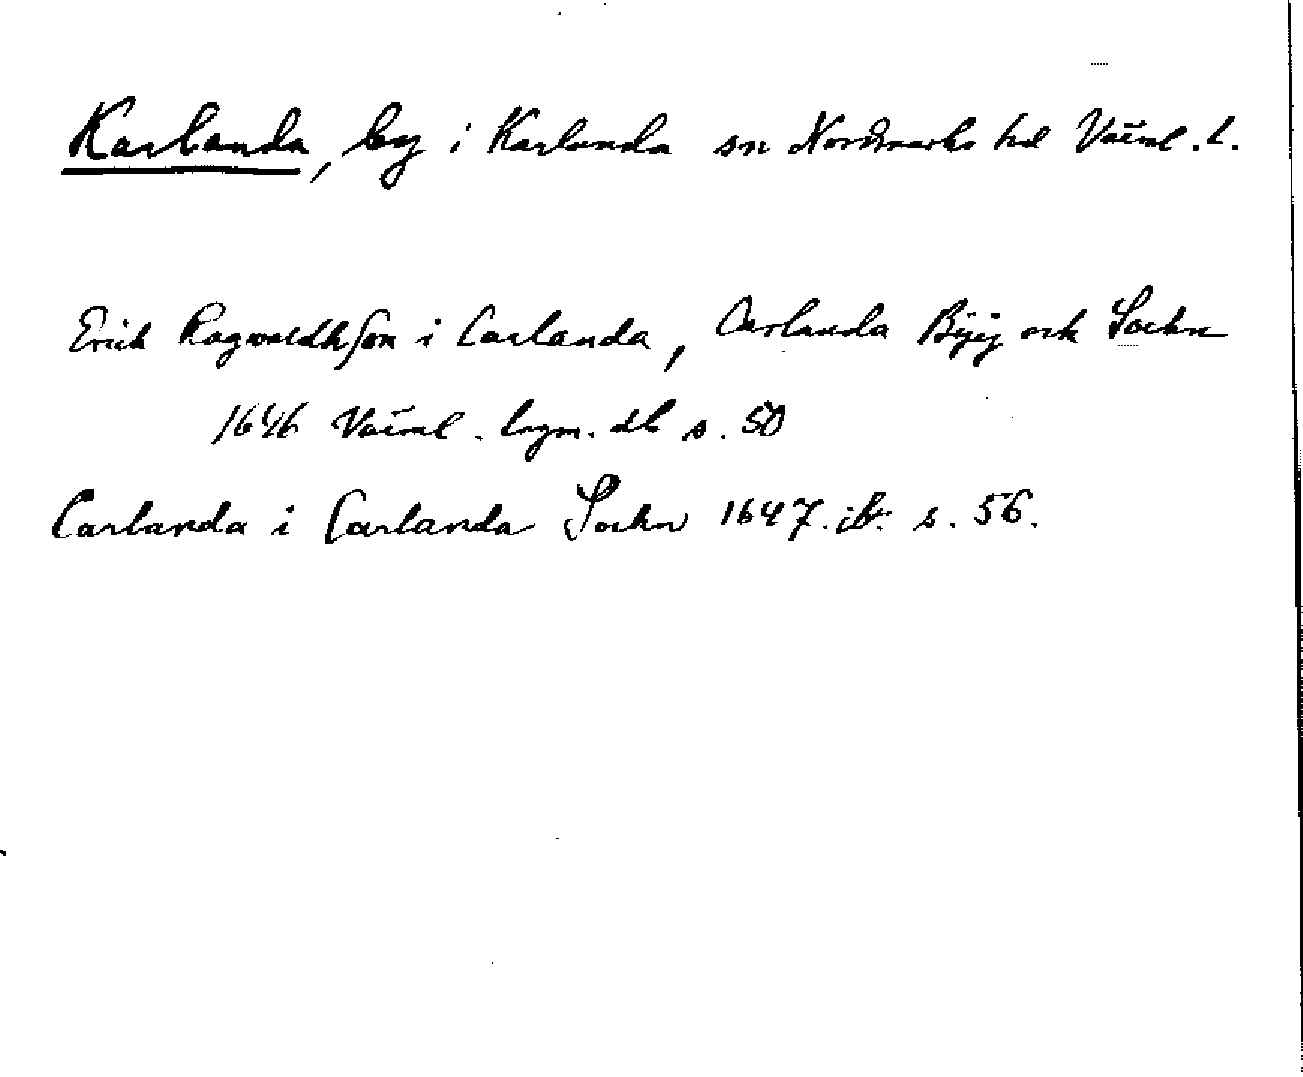 Karlanda, by i Karlanda sn Nordmarks hd Värml. l.
Erich Ragwaldhson i Carlanda, Carlanda Bÿÿ och Sochn
1646 Värml. lagm. db s. 50
Carlanda i Carlanda Sochn 1647. ib. s. 56.